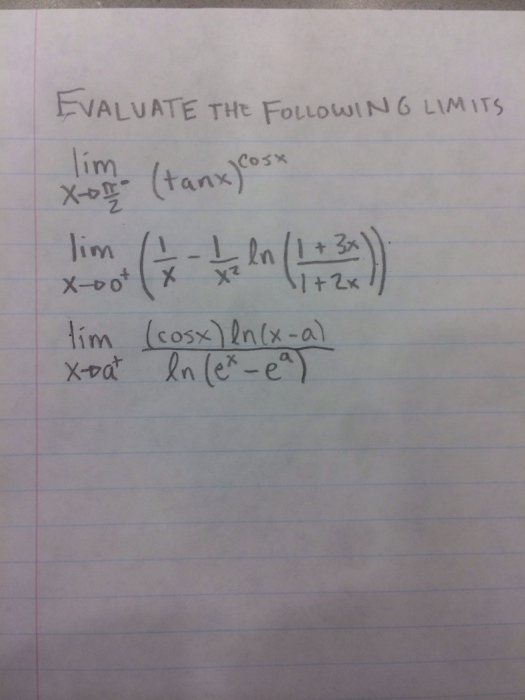 EVALUATE THE FOLLOWING LIMITS
lim x→π/2⁻ (tanx)^cosx
lim x→0⁺ (1/x - 1/x² ln((1+3x)/(1+2x)))
lim x→a⁺ (cosx)ln(x-a)/ln(eˣ-eᵃ)